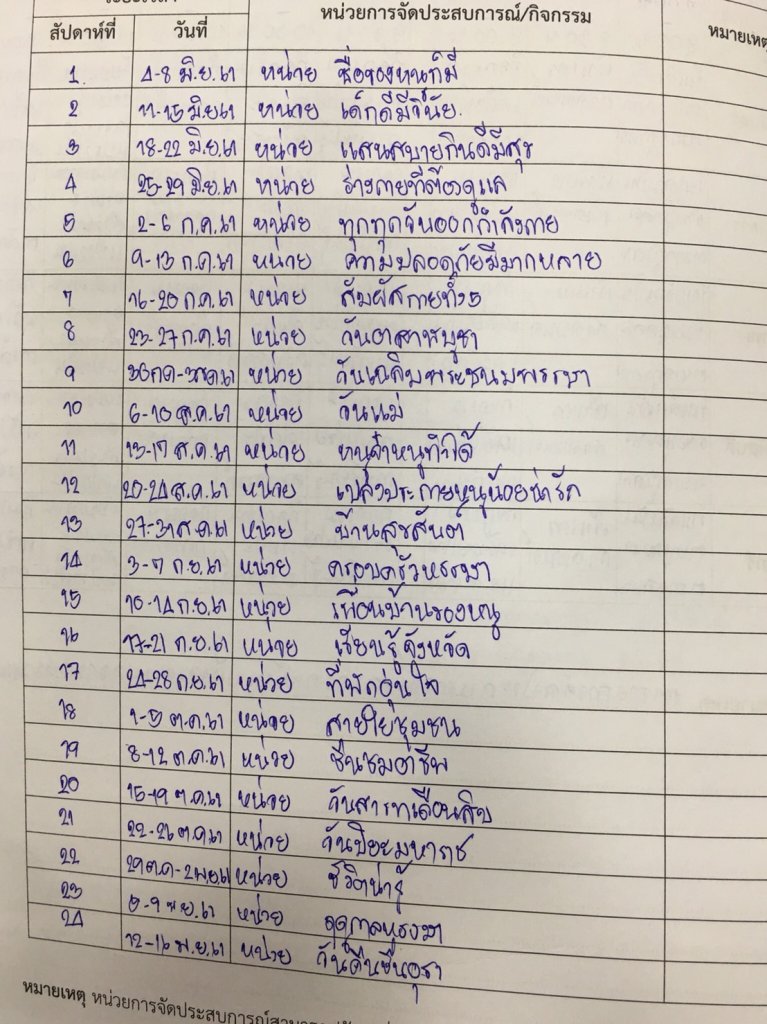 สัปดาห์ที่ วันที่ หน่วยการจัดประสบการณ์/กิจกรรม หมายเหตุ
1 4-8 มิ.ย.61 หน่วย ชื่อของหนูก็มี
2 11-15 มิ.ย.61 หน่วย เด็กดีมีวินัย
3 18-22 มิ.ย.61 หน่วย แสนสบายกินดีมีสุข
4 25-29 มิ.ย.61 หน่วย ร่างกายที่ต้องดูแล
5 2-6 ก.ค.61 หน่วย ทุกทุกวันออกกำลังกาย
6 9-13 ก.ค.61 หน่วย ความปลอดภัยมีมากหลาย
7 16-20 ก.ค.61 หน่วย สัมผัสกายทั้ง5
8 23-27 ก.ค.61 หน่วย วันอาสาฬบูชา
9 30ก.ค-3ส.ค.61 หน่วย วันเฉลิมพระชนมพรรษา
10 6-10 ส.ค.61 หน่วย วันแม่
11 13-17 ส.ค.61 หน่วย หนูจ๋าหนูทำได้
12 20-24 ส.ค.61 หน่วย เปล่งประกายหนูน้อยน่ารัก
13 27-31 ส.ค.61 หน่วย บ้านสุขสันต์
14 3-7 ก.ย.61 หน่วย ครอบครัวหรรษา
15 10-14 ก.ย.61 หน่วย เพื่อนบ้านของหนู
16 17-21 ก.ย.61 หน่วย เรียนรู้จังหวัด
17 24-28 ก.ย.61 หน่วย ที่พักอุ่นใจ
18 1-5 ต.ค.61 หน่วย สายใยชุมชน
19 8-12 ต.ค.61 หน่วย ชื่นชมอาชีพ
20 15-19 ต.ค.61 หน่วย วันสารทเดือนสิบ
21 22-26 ต.ค.61 หน่วย วันปิยะมหาราช
22 29ต.ค-2พ.ย.61 หน่วย ชีวิตน่ารู้
23 5-9 พ.ย.61 หน่วย ฤดูกาลหรรษา
24 12-16 พ.ย.61 หน่วย
หมายเหตุ หน่วยการจัดประสบการณ์